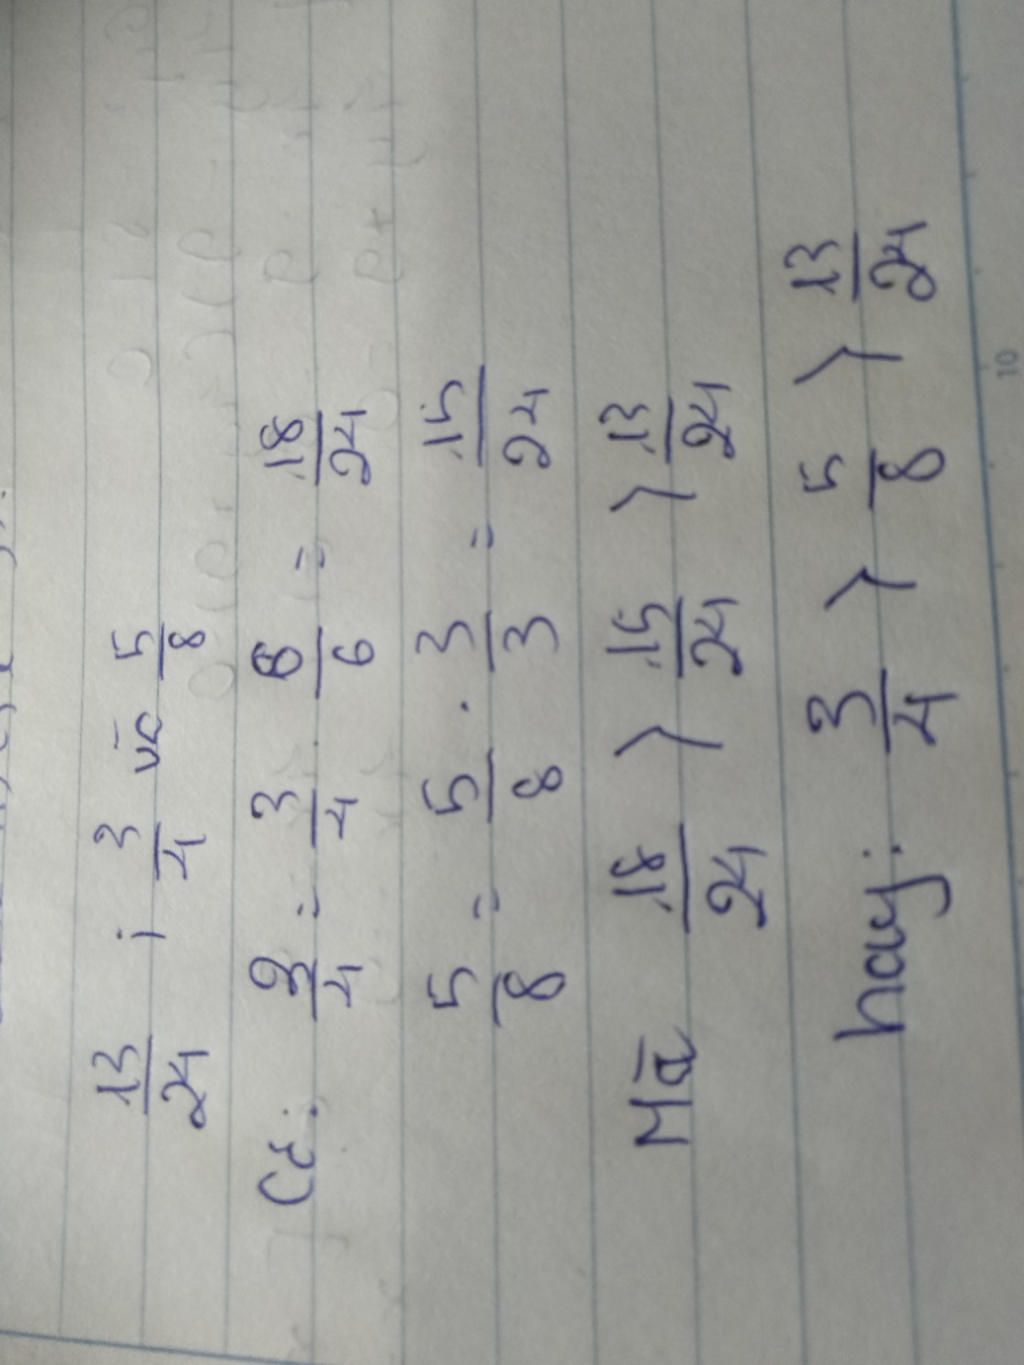 13/24 ; 3/4 và 5/8
Có: 3/4 = 3/4 . 6/6 = 18/24
5/8 = 5/8 . 3/3 = 15/24
Mà 18/24 > 15/24 > 13/24
hay: 3/4 > 5/8 > 13/24
10